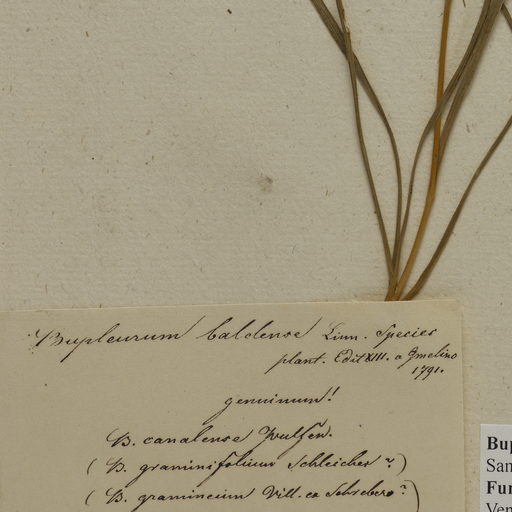 Bupleurum baldense Linn. Species
plant. Edit XIII. a Gmelino
1791.
genuinum!
B. canalense Wulfen.
(B. graminifolium Schleicher?)
(B. gramineum Vill. ex Schrebero?)
Bup
San
Fun
Ven